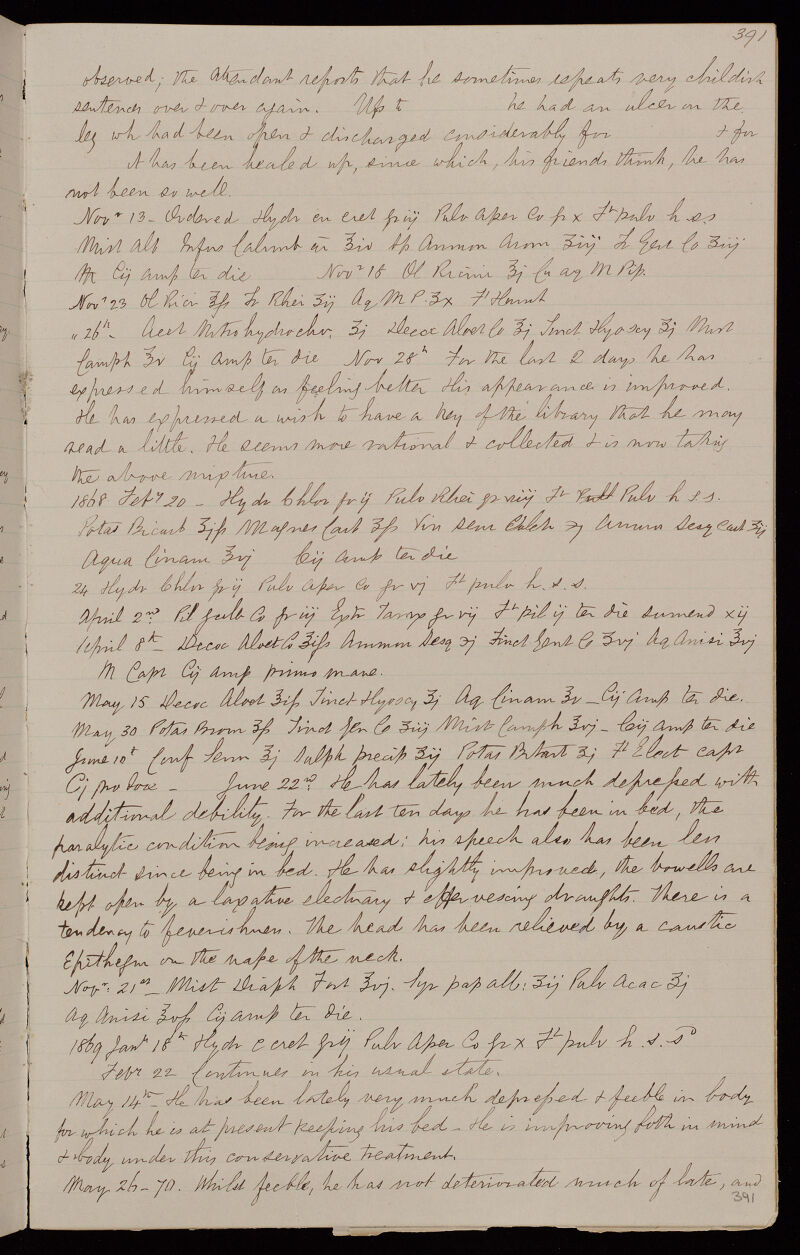 391
observed; the attendant reports that he sometimes repeats very childish
sentences over & over again. Up to he had an ulcer on the
leg wh had been open & discharged considerably for & for
it has been healed up, since which, his friends think, he has
not been so well.
Novr 13 - Ordered Hydr cu cret gr iij Pulv Aper Co gr x Ft pulv h. s. s
Mist Alb Infus Calumb a ʒiv Sp Ammon Arom ʒiij Tr Gent Co ʒiij
M Cij amp ter die Novr 18 Ol Ricini ʒj Cu aq M Pip.
Novr 23 Ol Ricin ʒſs Tr Rhei ʒij Aq M P. ʒx Ft Haust
" 26th - Acet Nitrohydrochlor. ʒj Decoc Aloet Co ʒj Tinct Hyoscy ʒj Mist
Camph ʒv Cij Amp ter die Nov 28th For the last 2 days he has
expressed himself as feeling better His appearance is improved.
He has expressed a wish to have a key of the library that he may
read a little. He seems more rational & collected & is now taking
the above mixture.
1868 Feby 20 - Hydr Chlor gr ij Pulv Rhei gr viij Ft Pulv h s s.
Potas Bicarb ʒjſs Magnes Carb ʒſs Vin Sem Colch Ammon Sesq Carb
Aqua Cinam ʒvj Cij amp ter die
24 Hydr Chlor gr ij Pulv Aper Co gr vj Ft pulv h. s. s.
April 2nd Pil Co gr iij Extr Tarax gr vij Ft pil ij ter die sumend xij
April 8th - Decoc Aloet Co ʒiſs Ammon Sesq Tinct Gent Co ʒvj Aq Anisi ʒvj
M Capt Cij amp primo mane.
May 15 Decoc Aloet ʒiſs Tinct Hyoscy ʒj Aq Cinam ʒv - Cij amp ter die.
May 30 Potas Brom ʒſs Tinct Gen Co ʒiij Mist Camph ʒvj - Cij amp ter die
June 10t Conf Senn ʒj Sulph precip ʒij Potas Bitart ʒj Ft Elect capt
Cj pro dose - June 22nd. He has lately been much depressed with
additional debility. For the last ten days he has been in bed, the
paralytic condition being increased; his speech also has been less
distinct since being in bed. He has slightly improved, the bowells are
kept open by a laxative electuary & effervescing draughts. There is a
tendency to feverishness. The head has been relieved by a caustic
Epithegm on the nape of the neck.
Novr: 21st - Mist Diaph Fort ʒvj. Syr pap alb: ʒij Pulv Acac ʒj
Aq Anisi Cij amp ter die.
1869 Jany 18th Hydr c cret gr ij Pulv Aper Co gr x Ft pulv h. s. s
Feby 22 Continues in his usual state.
May 14th - He has been lately very much depressed & feeble in body
for which he is at present keeping his bed - He is improving both in mind
& body under this conservative treatment.
May 26 - 70. Whilst feeble, he has not deteriorated much of late, and
391